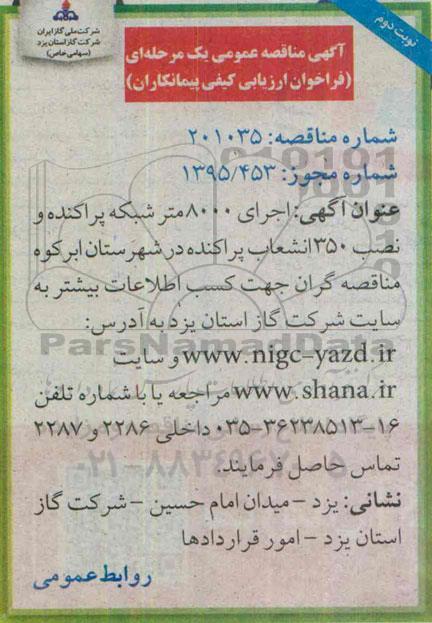 نوبت دوم
شرکت ملی گاز ایران
شرکت گاز استان یزد
(سهامی خاص)
آگهی مناقصه عمومی یک مرحله‌ای
(فراخوان ارزیابی کیفی پیمانکاران)
شماره مناقصه: ۲۰۱۰۳۵
شماره مجوز: ۱۳۹۵/۴۵۳
عنوان آگهی: اجرای ۸۰۰۰ متر شبکه پراکنده و
نصب ۳۵۰ انشعاب پراکنده در شهرستان ابرکوه
مناقصه گران جهت کسب اطلاعات بیشتر به
سایت شرکت گاز استان یزد به آدرس:
www.nigc-yazd.ir و سایت
www.shana.ir مراجعه یا با شماره تلفن
۰۳۵-۳۶۲۳۸۵۱۳-۱۶ داخلی ۲۲۸۶ و ۲۲۸۷
تماس حاصل فرمایند.
نشانی: یزد - میدان امام حسین - شرکت گاز
استان یزد - امور قراردادها
روابط عمومی
ParsNamadData
۰۲۱-۸۸۳۴۹۶۷۰-۵